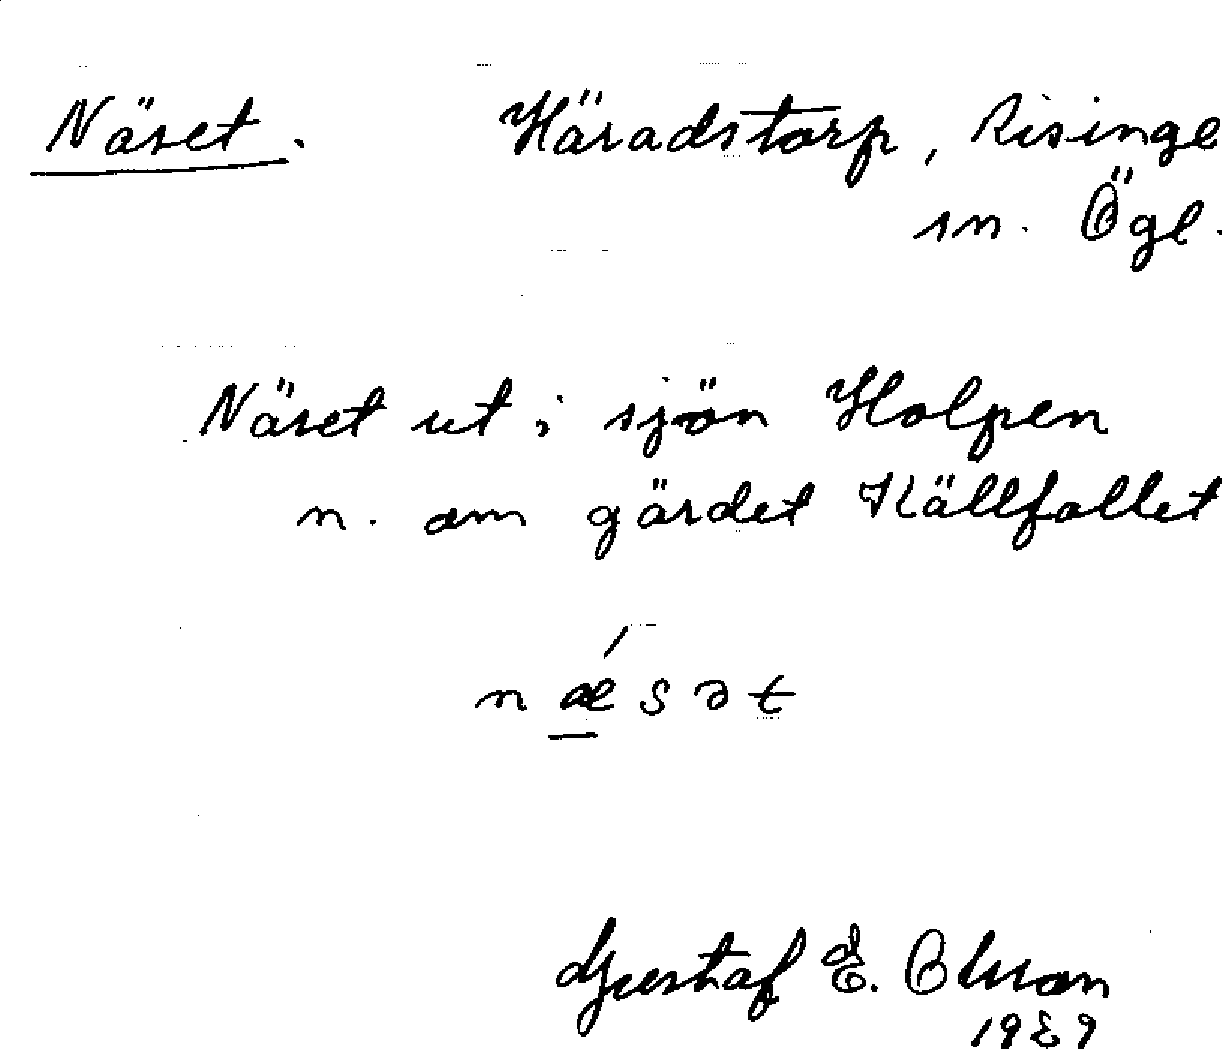 Näset. Häradstorp, Risinge
sn. Ögl.
Näset ut i sjön Holpen
n. om gärdet Källfallet
nǽsət
Gustaf E. Olsson